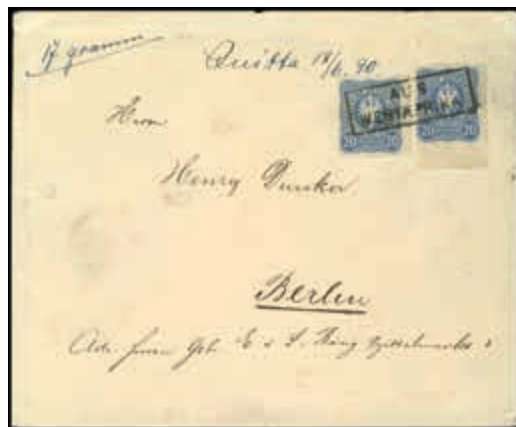 17 gramm
Quitta 18/6. 90
AUS
WESTAFRIKA
20 20 20 20
Herrn
Henry Dunker.
Berlin
Adr. Herren Gebr. E & S.